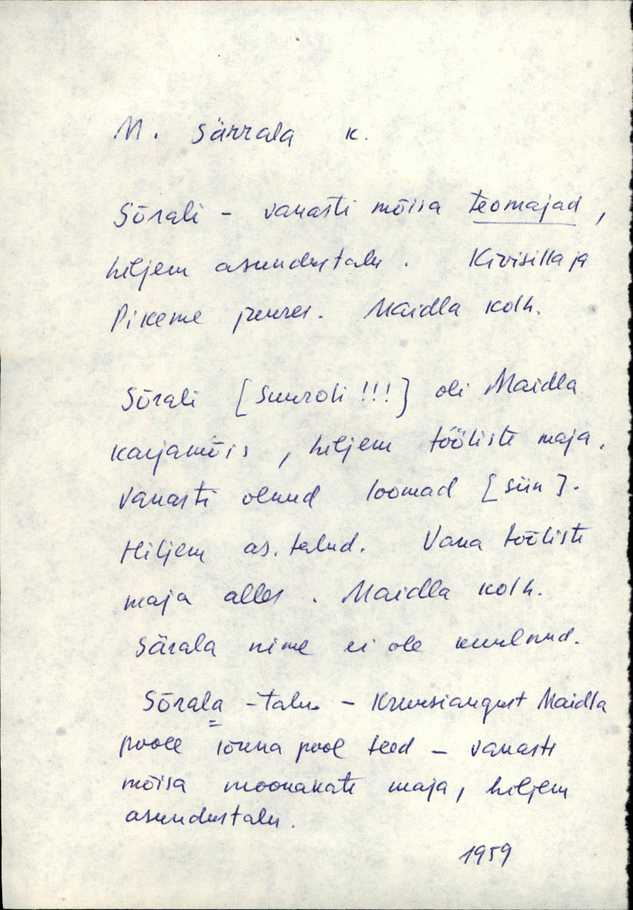 M. Särrala k.
Sõrali - vanasti mõisa teomajad,
hiljem asundustalu. Kivisilla ja
Pikeme juures. Maidla kolh.
Sõrali [Suuroli !!!] oli Maidla
karjamõis, hiljem tööliste maja.
Vanasti olnud loomad [siin].
Hiljem as. talud. Vana tööliste
maja alles. Maidla kolh.
Särala nime ei ole kuulnud.
Sõrala - talu - Kruusiaugust Maidla
poole lõuna pool teed - vanasti
mõisa moonakate maja, hiljem
asundustalu.
1959